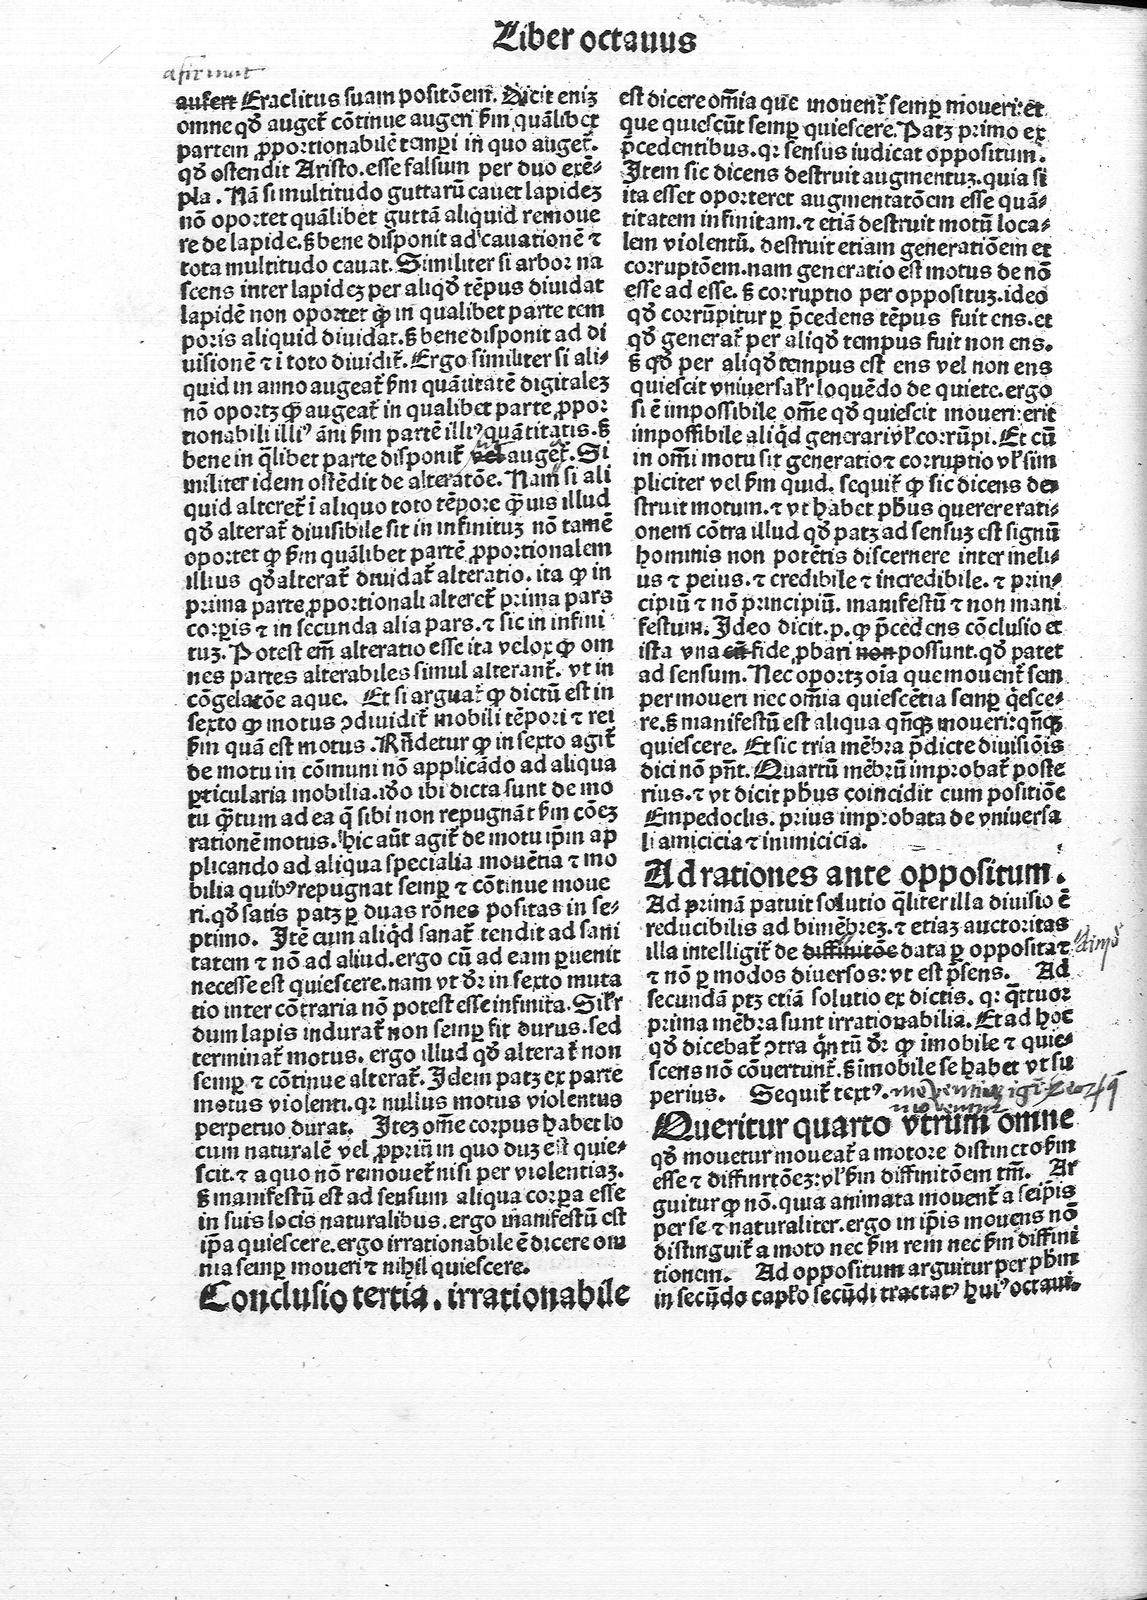 Liber octauus
afirmat
aufert Eraclitus suam positōem. Dicit eniꝫ
omne qđ auget᷑ cōtinue augeri ẜm quālibet
partem ꝓportionabilē temꝑi in quo auget᷑.
qđ ostendit Aristo. esse falsum per duo exē⸗
pla. Nā si multitudo guttarū cauet lapideꝫ
nō oportet quālibet guttā aliquid remoue
re de lapide. ſꝫ bene disponit ad cauationē ⁊
tota multitudo cauat. Similiter si arbor na
scens inter lapideꝫ per aliqđ tēpus diuidat
lapidē non oportet ꝙ in qualibet parte tem
poris aliquid diuidat. ſꝫ bene disponit ad di
uisionē ⁊ ī toto diuidit᷑. Ergo similiter si ali⸗
quid in anno augeat᷑ ẜm quātitatē digitaleꝫ
nō oportꝫ ꝙ augeat᷑ in qualibet parte ꝓpor
tionabili illiꝰ āni ẜm partē illiꝰ quātitatis. ſꝫ
bene in q̄libet parte disponit᷑ vel auget᷑. Si
militer idem ostēdit de alteratōe. Nam si ali
quid alteret᷑ ī aliquo toto tēpore ꝙ̄uis illud
qđ alterat᷑ diuisibile sit in infinituꝫ nō tamē
oportet ꝙ ẜm quālibet partē ꝓportionalem
illius qđ alterat᷑ diuidat᷑ alteratio. ita ꝙ in
prima parte ꝓportionali alteret᷑ prima pars
corꝑis ⁊ in secunda alia pars. ⁊ sic in infini
tuꝫ. Potest em̄ alteratio esse ita velox ꝙ om
nes partes alterabiles simul alterant᷑. vt in
cōgelatōe aque. Et si arguat᷑ ꝙ dictū est in
sexto ꝙ motus ꝯdiuidit᷑ mobili tēpori ⁊ rei
ẜm quā est motus. Rn̄detur ꝙ in sexto agit᷑
de motu in cōmuni nō applicādo ad aliqua
ꝑticularia mobilia. iđo ibi dicta sunt de mo
tu ꝙ̄tum ad ea q̄ sibi non repugnāt ẜm cōeꝫ
rationē motus. hic aūt agit᷑ de motu ip̄m ap
plicando ad aliqua specialia mouētia ⁊ mo
bilia quibꝰ repugnat semꝑ ⁊ cōtinue moue
ri. qđ satis patꝫ ꝑ duas rōnes positas in se⸗
ptimo. Itē cum aliqđ sanat᷑ tendit ad sani
tatem ⁊ nō ad aliud. ergo cū ad eam ꝑuenit
necesse est quiescere. nam vt dr̄ in sexto muta
tio inter cōtraria nō potest esse infinita. Silr̄
dum lapis indurat᷑ non semꝑ fit durus. sed
terminat᷑ motus. ergo illud qđ alterat᷑ non
semꝑ ⁊ cōtinue alterat᷑. Idem patꝫ ex parte
motus violenti. qꝛ nullus motus violentus
perpetuo durat. Iteꝫ om̄e corpus habet lo
cum naturalē vel ꝓpriū in quo duꝫ est quie⸗
scit. ⁊ a quo nō remouet᷑ nisi per violentiaꝫ.
ſꝫ manifestū est ad sensum aliqua corꝑa esse
in suis locis naturalibus. ergo manifestū est
ip̄a quiescere. ergo irrationabile ē dicere om
nia semꝑ moueri ⁊ nihil quiescere.
Conclusio tertia. irrationabile
est dicere om̄ia que mouent᷑ semꝑ moueri: et
que quiescūt semꝑ quiescere. Patꝫ primo ex
p̄cedentibus. qꝛ sensus iudicat oppositum.
Item sic dicens destruit augmentuꝫ. quia si
ita esset oporteret augmentatōem esse quā⸗
titatem infinitam. ⁊ etiā destruit motū loca⸗
lem violentū. destruit etiam generatiōem et
corruptōem. nam generatio est motus de nō
esse ad esse. ſꝫ corruptio per oppositꝫ. ideo
qđ corrūpitur ꝑ p̄cedens tēpus fuit ens. et
qđ generat᷑ per aliqđ tempus fuit non ens.
ſꝫ qđ per aliqđ tempus est ens vel non ens
quiescit vniuersalr̄ loquēdo de quiete. ergo
si ē impossibile om̄e qđ quiescit moueri: erit
impossibile aliqđ generari vl̓ corrūpi. Et cū
in om̄i motu sit generatio ⁊ corruptio vl̓ sim
pliciter vel ẜm quid. sequit᷑ ꝙ sic dicens de
struit motum. ⁊ vt habet ph̄us querere rati⸗
onem cōtra illud qđ patꝫ ad sensuꝫ est signū
hominis non potētis discernere inter meli⸗
us ⁊ peius. ⁊ credibile ⁊ incredibile. ⁊ prin⸗
cipiū ⁊ nō principiū. manifestū ⁊ non mani
festum. Ideo dicit. p. ꝙ p̄cedens cōclusio et
ista vna cū fide ꝓbari non possunt. qđ patet
ad sensum. Nec oportꝫ oīa que mouent᷑ sem
per moueri nec om̄ia quiescētia semꝑ q̇esce⸗
re. ſꝫ manifestū est aliqua qn̄qꝫ moueri: qn̄qꝫ
quiescere. Et sic tria mēbra p̄dicte diuisiōis
dici nō pn̄t. Quartū mēbrū improbat᷑ poste
rius. ⁊ vt dicit ph̄us coincidit cum positiōe
Empedoclis. prius improbata de vniuersa
li amicicia ⁊ inimicicia.
Ad rationes ante oppositum.
Ad primā patuit solutio q̄liter illa diuisio ē
reducibilis ad bimēbreꝫ. ⁊ etiaꝫ auctoritas
illa intelligit᷑ de diffinitōe data ꝑ opposita ⁊
⁊ nō ꝑ modos diuersos: vt est p̄sens. Ad
secundā ptꝫ etiā solutio ex dictis. qꝛ q̄ttuor
prima mēbra sunt irrationabilia. Et ad hoc
qđ dicebat᷑ ꝯtra q̇ntū dr̄ ꝙ imobile ⁊ quie⸗
scens nō cōuertunt᷑. ſꝫ imobile se habet vt su
perius. Sequit᷑ textꝰ.
Queritur quarto vtrum omne
qđ mouetur moueat᷑ a motore distincto ẜm
esse ⁊ diffinitōeꝫ: vl̓ ẜm diffinitōem tm̄. Ar
guitur ꝙ nō. quia animata mouent᷑ a seip̄is
per se ⁊ naturaliter. ergo in ip̄is mouens nō
distinguit᷑ a moto nec ẜm rem nec ẜm diffini
tionem. Ad oppositum arguitur per ph̄m
in secūdo caplo secūdi tractatꝰ huiꝰ octaui.